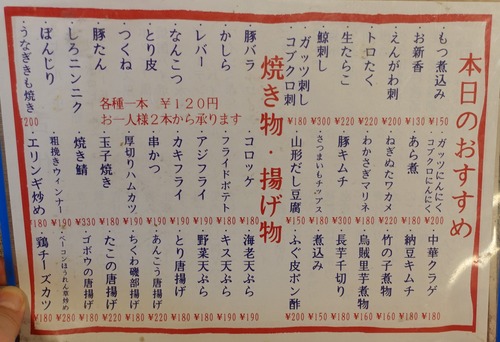 本日のおすすめ
・もつ煮込み ¥150
・お新香 ¥130
・えんがわ刺 ¥220
・トロたく ¥220
・生たらこ
・鯨刺し ¥300
・ガッツ刺し
コブクロ刺 ¥180
・ガッツにんにく
コブクロにんにく ¥200
・あら煮 ¥180
・ねぎぬたワカメ ¥220
・わかさぎマリネ ¥180
・豚キムチ ¥300
・さつまいもチップス ¥180
・山形だし豆腐 ¥150
・中華クラゲ ¥160
・納豆キムチ ¥180
・竹の子煮物 ¥160
・烏賊里芋煮物 ¥160
・長芋千切り ¥180
・煮込み ¥150
・ふぐ皮ポン酢 ¥200
焼き物・揚げ物
・豚バラ
・かしら
・レバー
・なんこつ
・とり皮
・つくね
・豚たん
・しろニンニク
・ぼんじり
・うなぎきも焼き ¥200
各種一本 ¥120円
お一人様2本から承ります
・コロッケ ¥180
・フライドポテト ¥190
・アジフライ ¥190
・カキフライ ¥190
・串かつ ¥190
・厚切りハムカツ ¥190
・玉子焼き ¥180
・焼き鯖 ¥330
・粗挽きウィンナー ¥190
・エリンギ炒め ¥180
・海老天ぷら ¥190
・キス天ぷら ¥190
・野菜天ぷら ¥180
・とり唐揚げ ¥180
・あんこう唐揚げ ¥180
・ちくわ磯部揚げ ¥180
・たこの唐揚げ ¥220
・ゴボウの唐揚げ ¥180
・ベーコンほうれん草炒め ¥280
・鶏チーズカツ ¥180